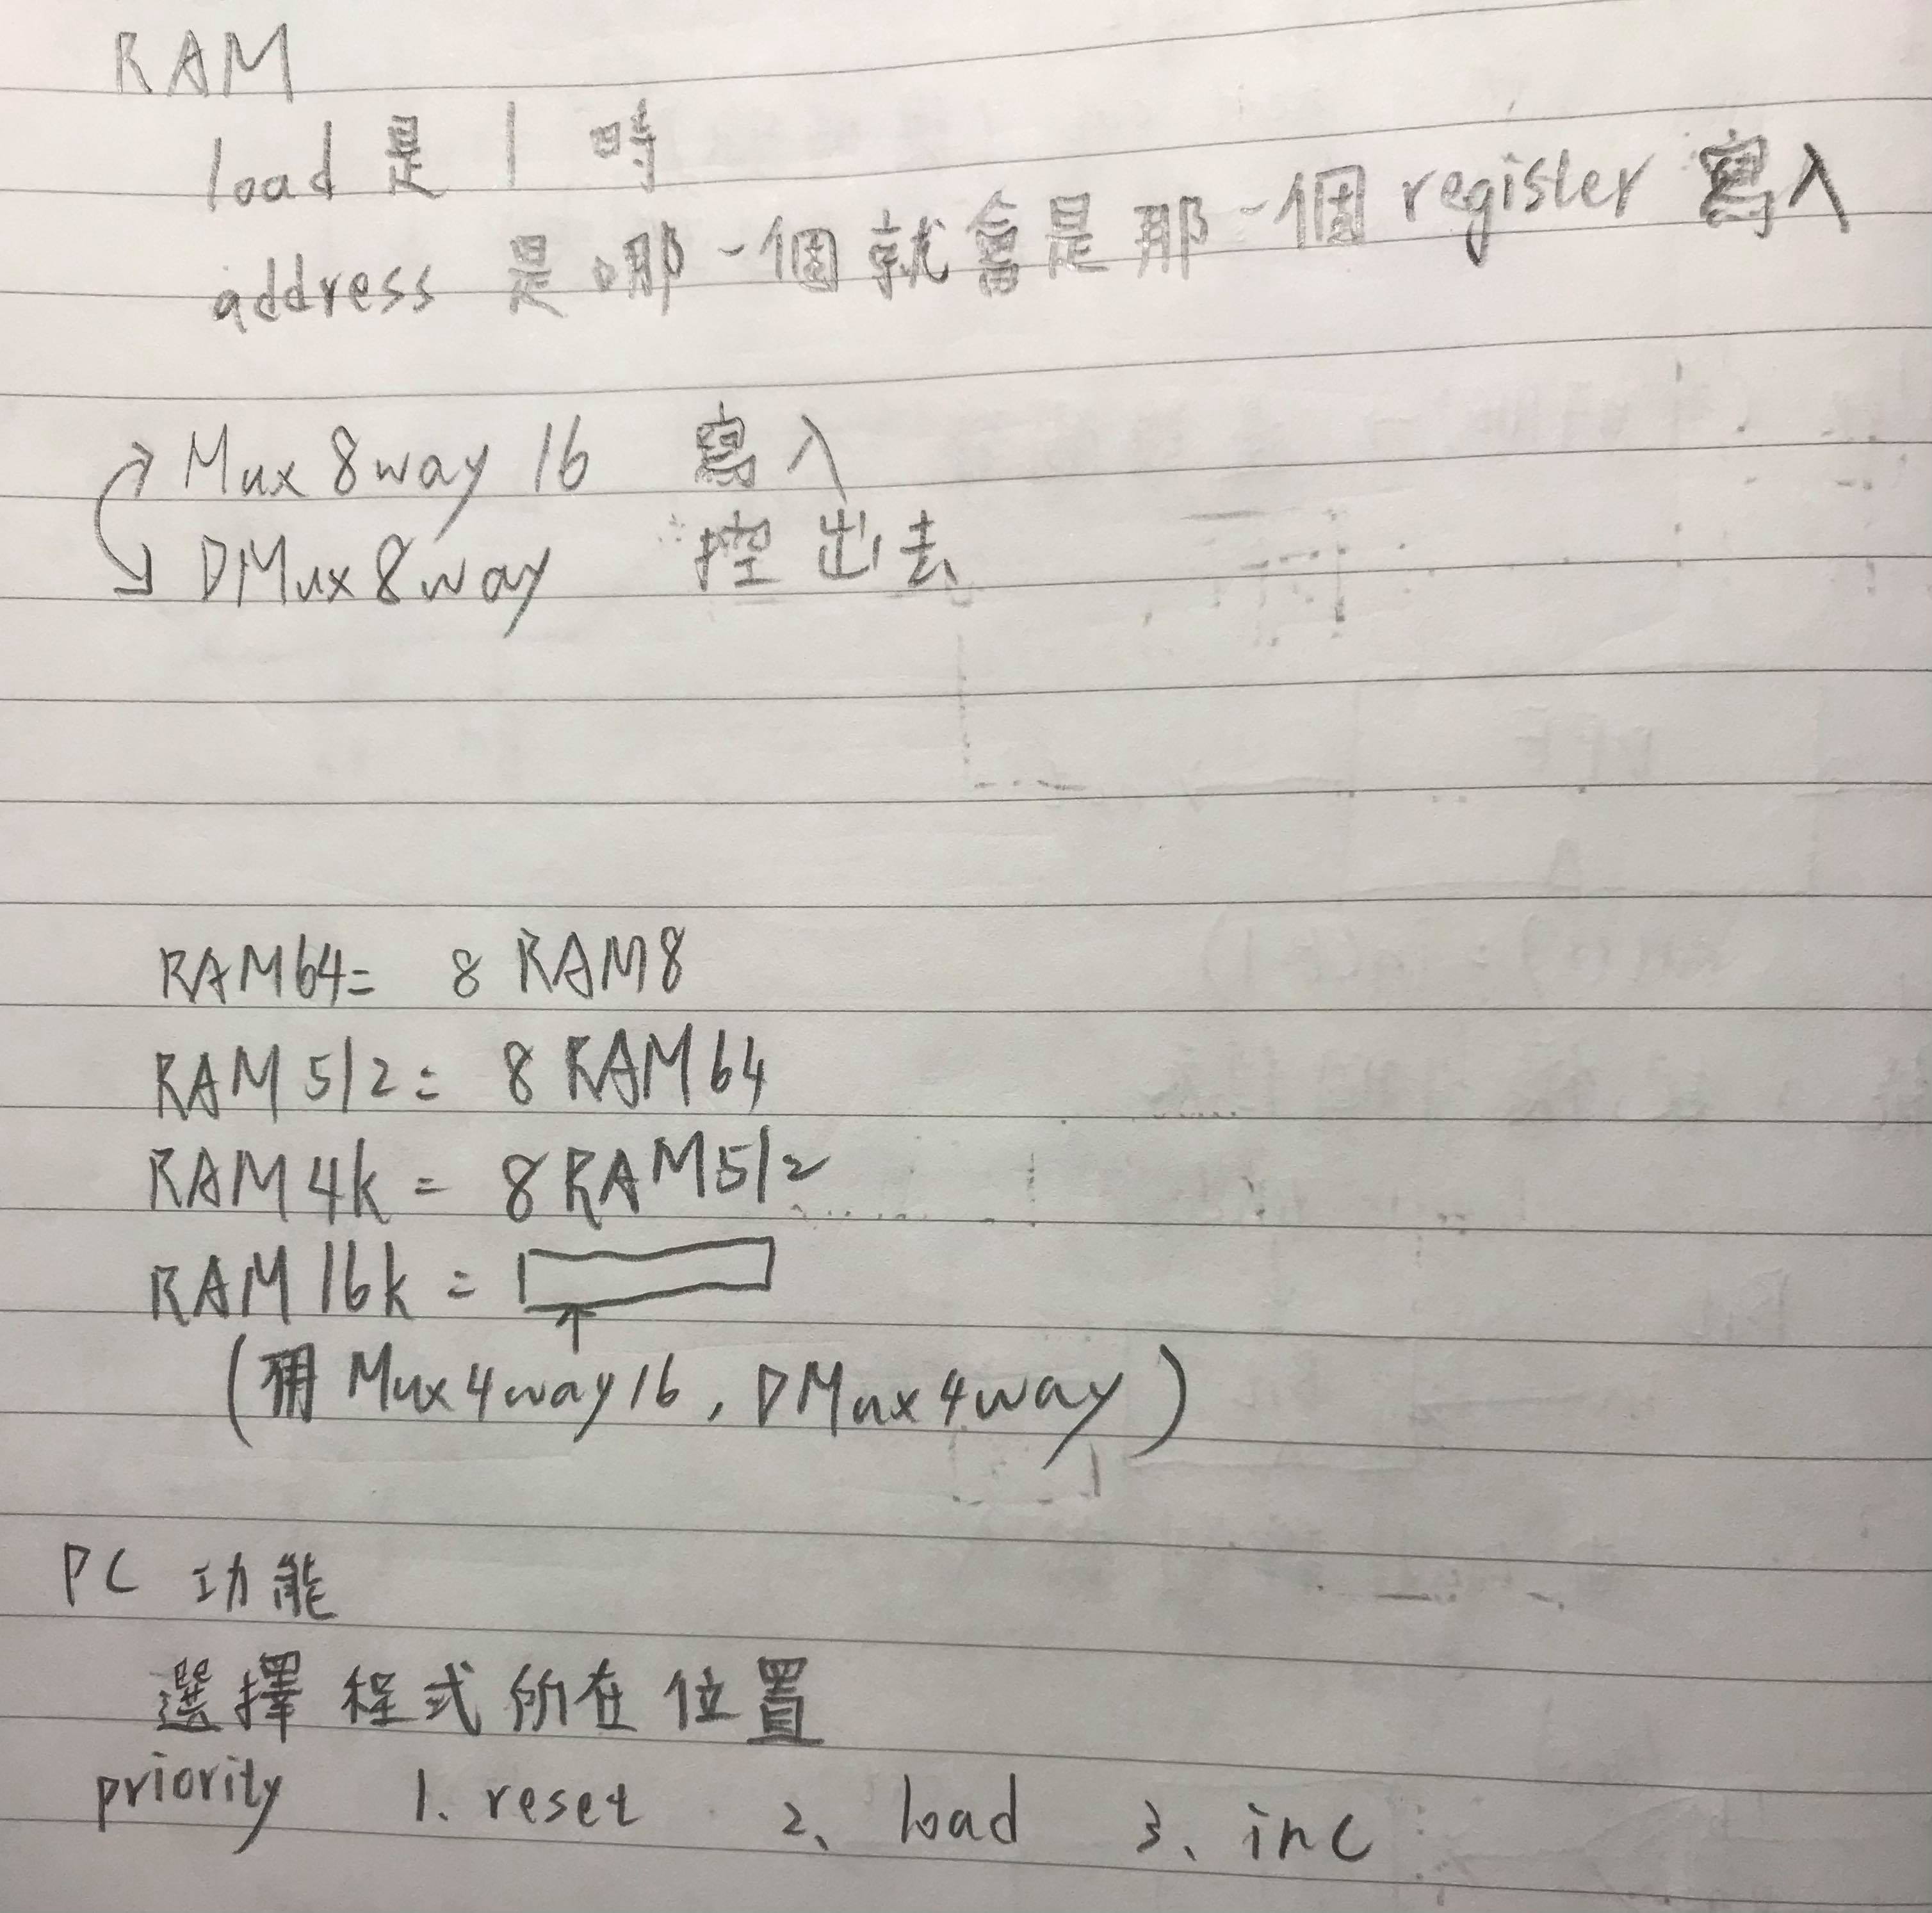 RAM
load 是 1 時
address 是哪一個就會是那一個 register 寫入
Mux8way16 寫入
DMux8way 控出去
RAM64= 8 RAM8
RAM512= 8 RAM64
RAM4k = 8 RAM512
RAM16k =
(用 Mux4way16, DMux4way)
PC 功能
選擇程式所在位置
priority 1. reset 2、load 3、inc